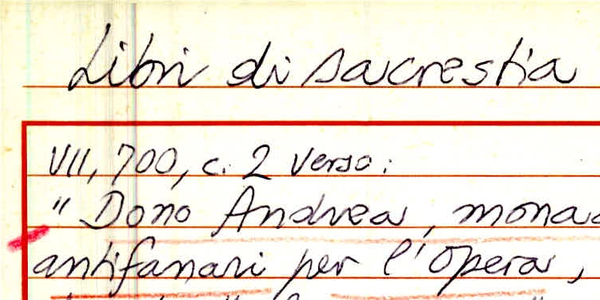 Libri di sacrestia
VII, 700, c. 2 verso:
" Dono Andrea, monac
antifanari per l'Opera,